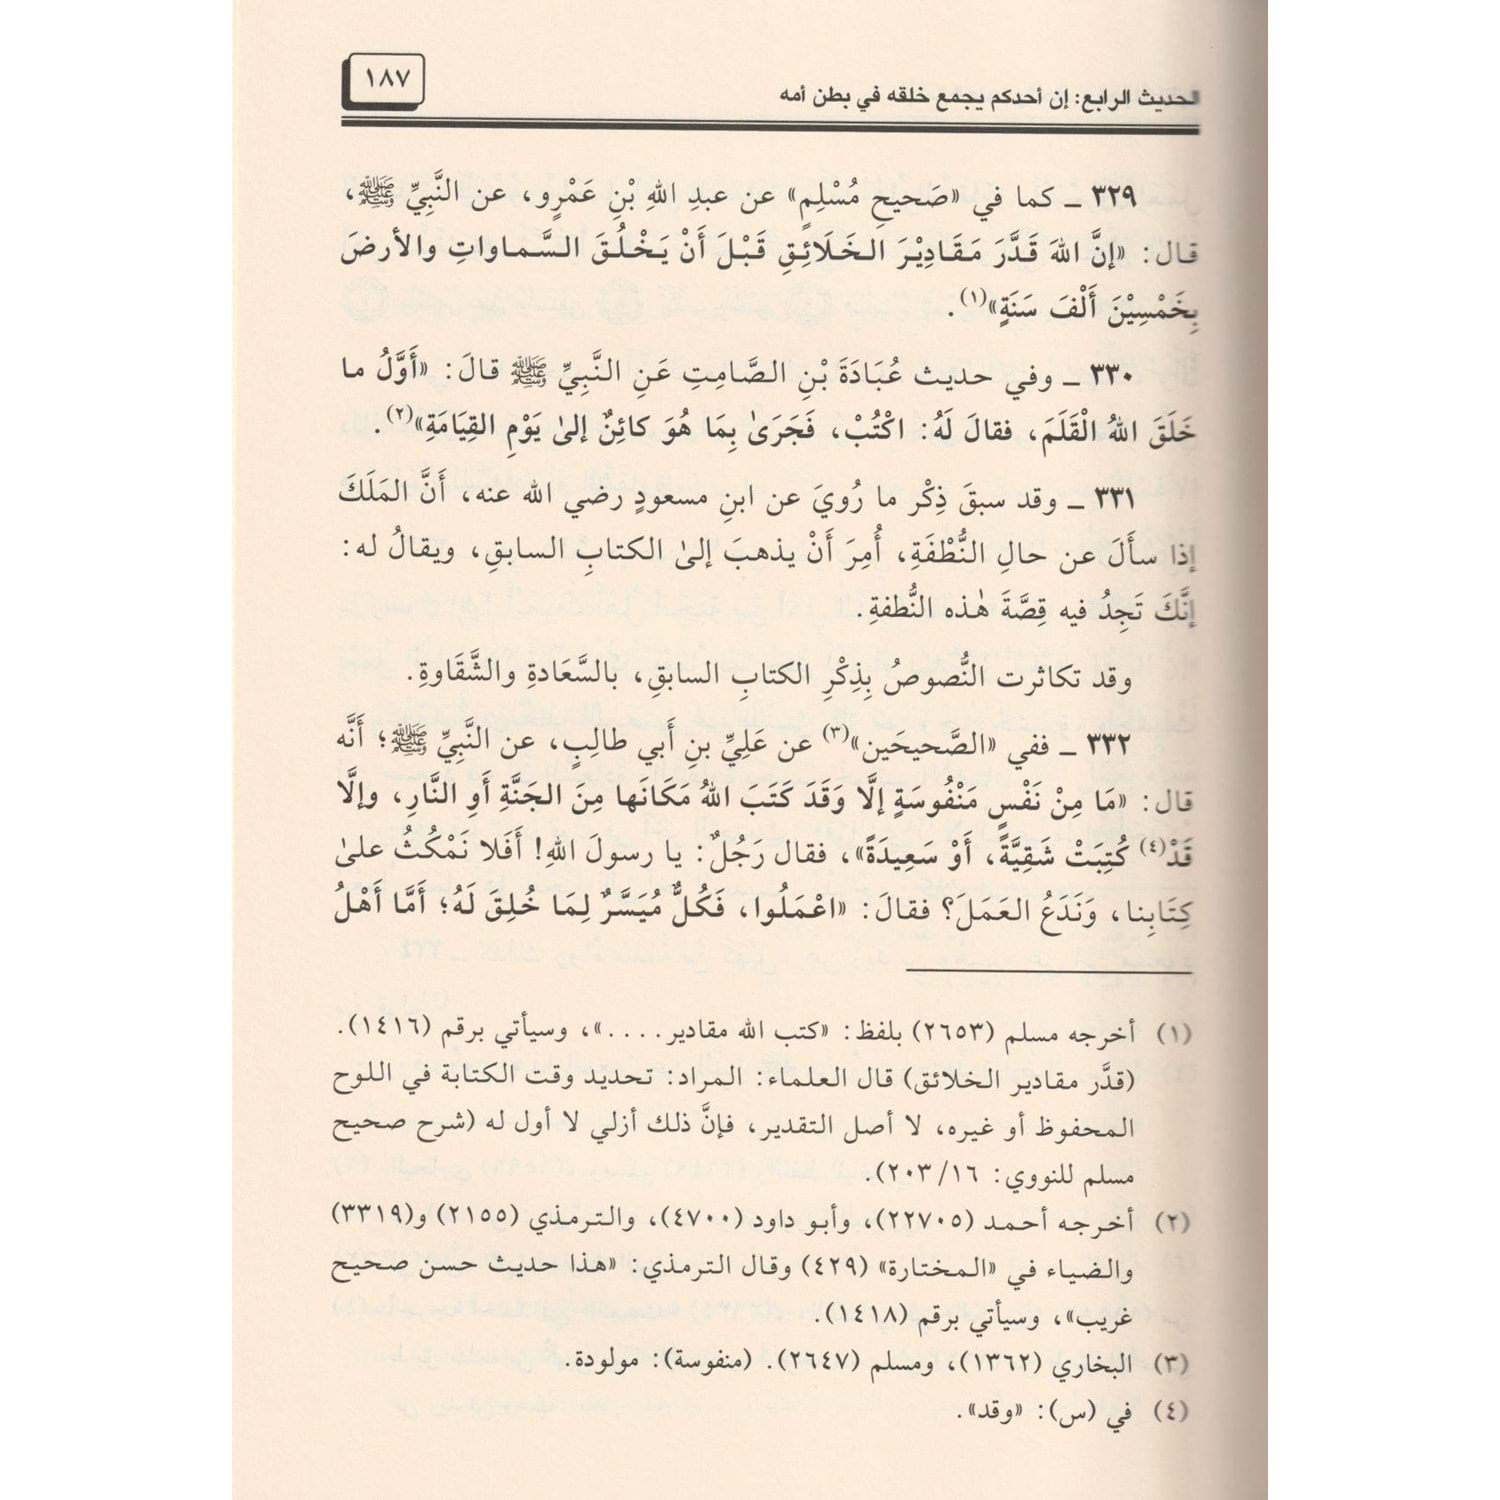 الحديث الرابع: إن أحدكم يجمع خلقه في بطن أمه
١٨٧
٣٢٩ ـ كما في «صَحيحِ مُسْلِمٍ» عن عبدِ اللهِ بْنِ عَمْرٍو، عن النَّبِيِّ ﷺ،
قال: «إنَّ اللهَ قَدَّرَ مَقَادِيْرَ الخَلَائِقِ قَبْلَ أَنْ يَخْلُقَ السَّماواتِ والأرضَ
بِخَمْسِيْنَ أَلْفَ سَنَةٍ»(١).
٣٣٠ ـ وفي حديث عُبَادَةَ بْنِ الصَّامِتِ عَنِ النَّبِيِّ ﷺ قالَ: «أَوَّلُ ما
خَلَقَ اللهُ الْقَلَمَ، فقالَ لَهُ: اكْتُبْ، فَجَرَىٰ بِمَا هُوَ كائِنٌ إلىٰ يَوْمِ القِيَامَةِ»(٢).
٣٣١ ـ وقد سبقَ ذِكْر ما رُويَ عن ابنِ مسعودٍ رضي الله عنه، أَنَّ المَلَكَ
إذا سأَلَ عن حالِ النُّطْفَةِ، أُمِرَ أَنْ يذهبَ إلىٰ الكتابِ السابقِ، ويقالُ له:
إنَّكَ تَجِدُ فيه قِصَّةَ هٰذه النُّطفةِ.
وقد تكاثرت النُّصوصُ بِذِكْرِ الكتابِ السابقِ، بالسَّعَادةِ والشَّقَاوةِ.
٣٣٢ ـ ففي «الصَّحيحَين»(٣) عن عَلِيِّ بنِ أَبي طالِبٍ، عن النَّبيِّ ﷺ؛ أَنَّه
قال: «مَا مِنْ نَفْسٍ مَنْفُوسَةٍ إلَّا وَقَدَ كَتَبَ اللهُ مَكَانَها مِنَ الجَنَّةِ أَوِ النَّارِ، وإلَّا
قَدْ(٤) كُتِبَتْ شَقِيَّةً، أَوْ سَعِيدَةً»، فقال رَجُلٌ: يا رسولَ اللهِ! أَفَلا نَمْكُثُ علىٰ
كِتَابِنا، وَنَدَعُ العَمَلَ؟ فقالَ: «اعْمَلُوا، فَكُلٌّ مُيَسَّرٌ لِمَا خُلِقَ لَهُ؛ أَمَّا أَهْلُ
(١) أخرجه مسلم (٢٦٥٣) بلفظ: «كتب الله مقادير ....»، وسيأتي برقم (١٤١٦).
(قدَّر مقادير الخلائق) قال العلماء: المراد: تحديد وقت الكتابة في اللوح
المحفوظ أو غيره، لا أصل التقدير، فإنَّ ذلك أزلي لا أول له (شرح صحيح
مسلم للنووي: ٢٠٣/١٦).
(٢) أخرجه أحمد (٢٢٧٠٥)، وأبو داود (٤٧٠٠)، والترمذي (٢١٥٥) و(٣٣١٩)
والضياء في «المختارة» (٤٢٩) وقال الترمذي: «هذا حديث حسن صحيح
غريب»، وسيأتي برقم (١٤١٨).
(٣) البخاري (١٣٦٢)، ومسلم (٢٦٤٧). (منفوسة): مولودة.
(٤) في (س): «وقد».